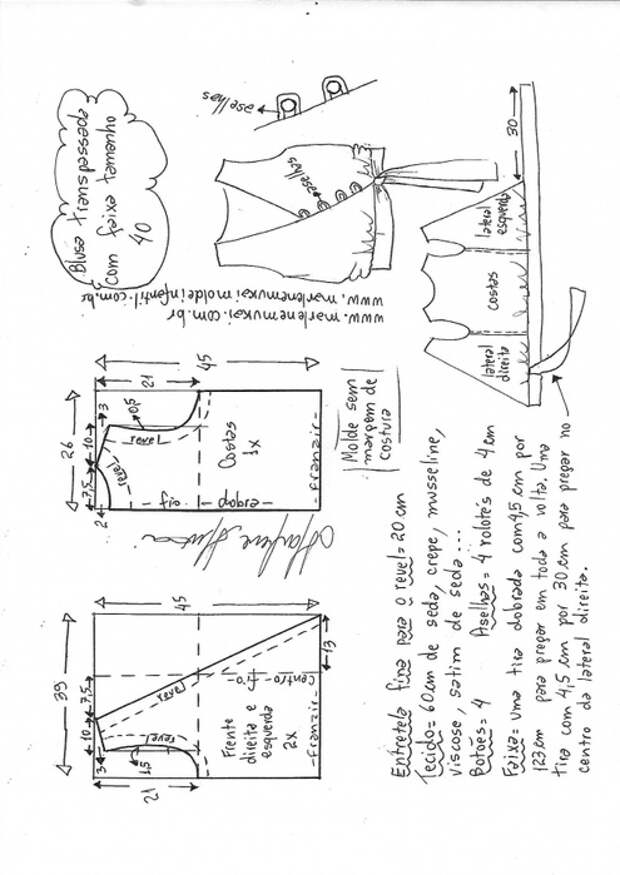 Blusa transpassada
com faixa tamanho
40
aselhas
aselhas
www.marlenemukai.com.br
www.marlenemukaimoldeinfantil.com.br
30
lateral
direita
costas
lateral
esquerda
26
7,5
10
3
2
21
45
0,5
revel
revel
Costas
1x
fio
dobra
franzir
Molde sem
margem de
costura
Marlene Mukai
39
10
7,5
3
21
45
1,5
revel
revel
Frente
direita e
esquerda
2x
Centro
fio
franzir
13
Entretela fina para o revel = 20 cm
Tecido = 60 cm de seda, crepe, musseline,
viscose, satim de seda...
Botões = 4 Aselhas = 4 rolotês de 4 cm
Faixa = uma tira dobrada com 4,5 cm por
123 cm para pregar em toda a volta. Uma
tira com 4,5 cm por 30 cm para pregar no
centro da lateral direita.